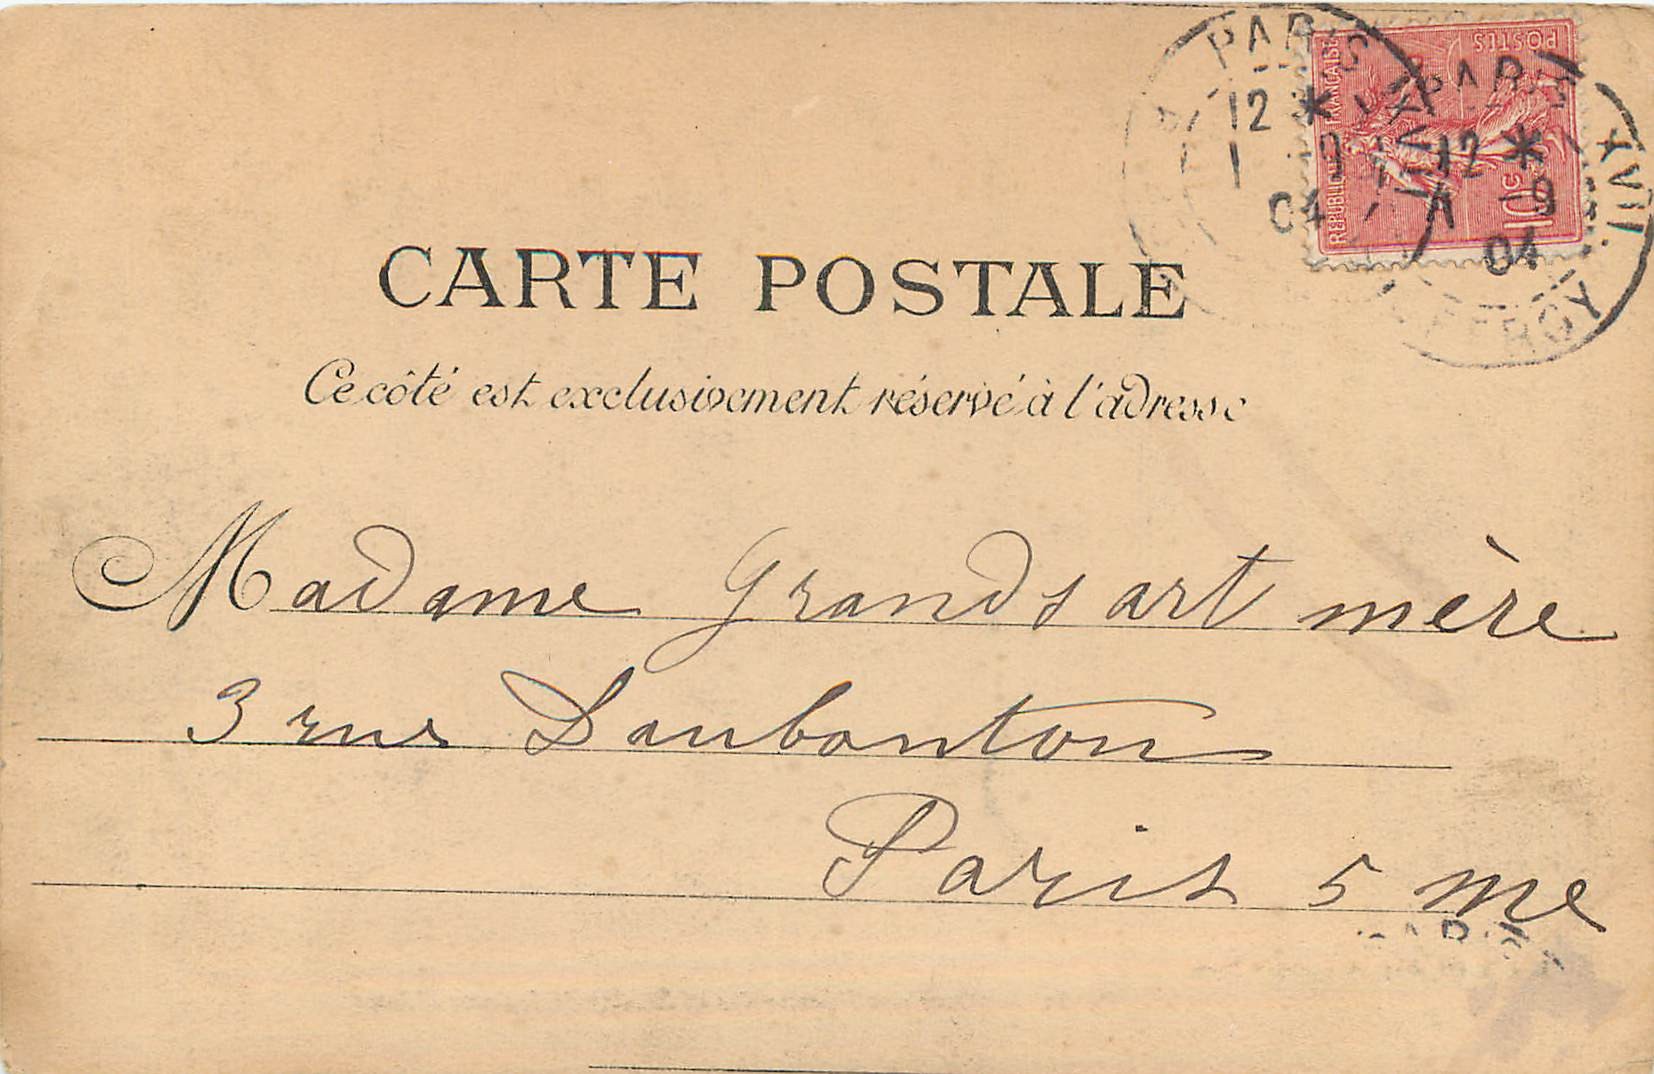 PARIS XVII
12 * 1 9
04
PARIS XVII
12 * 9
04
REPUBLIQUE FRANCAISE
POSTES
10c
CARTE POSTALE
Ce côté est exclusivement réservé à l'adresse
Madame Grandsart mère
3 rue Daubanton
Paris 5 me
PARIS